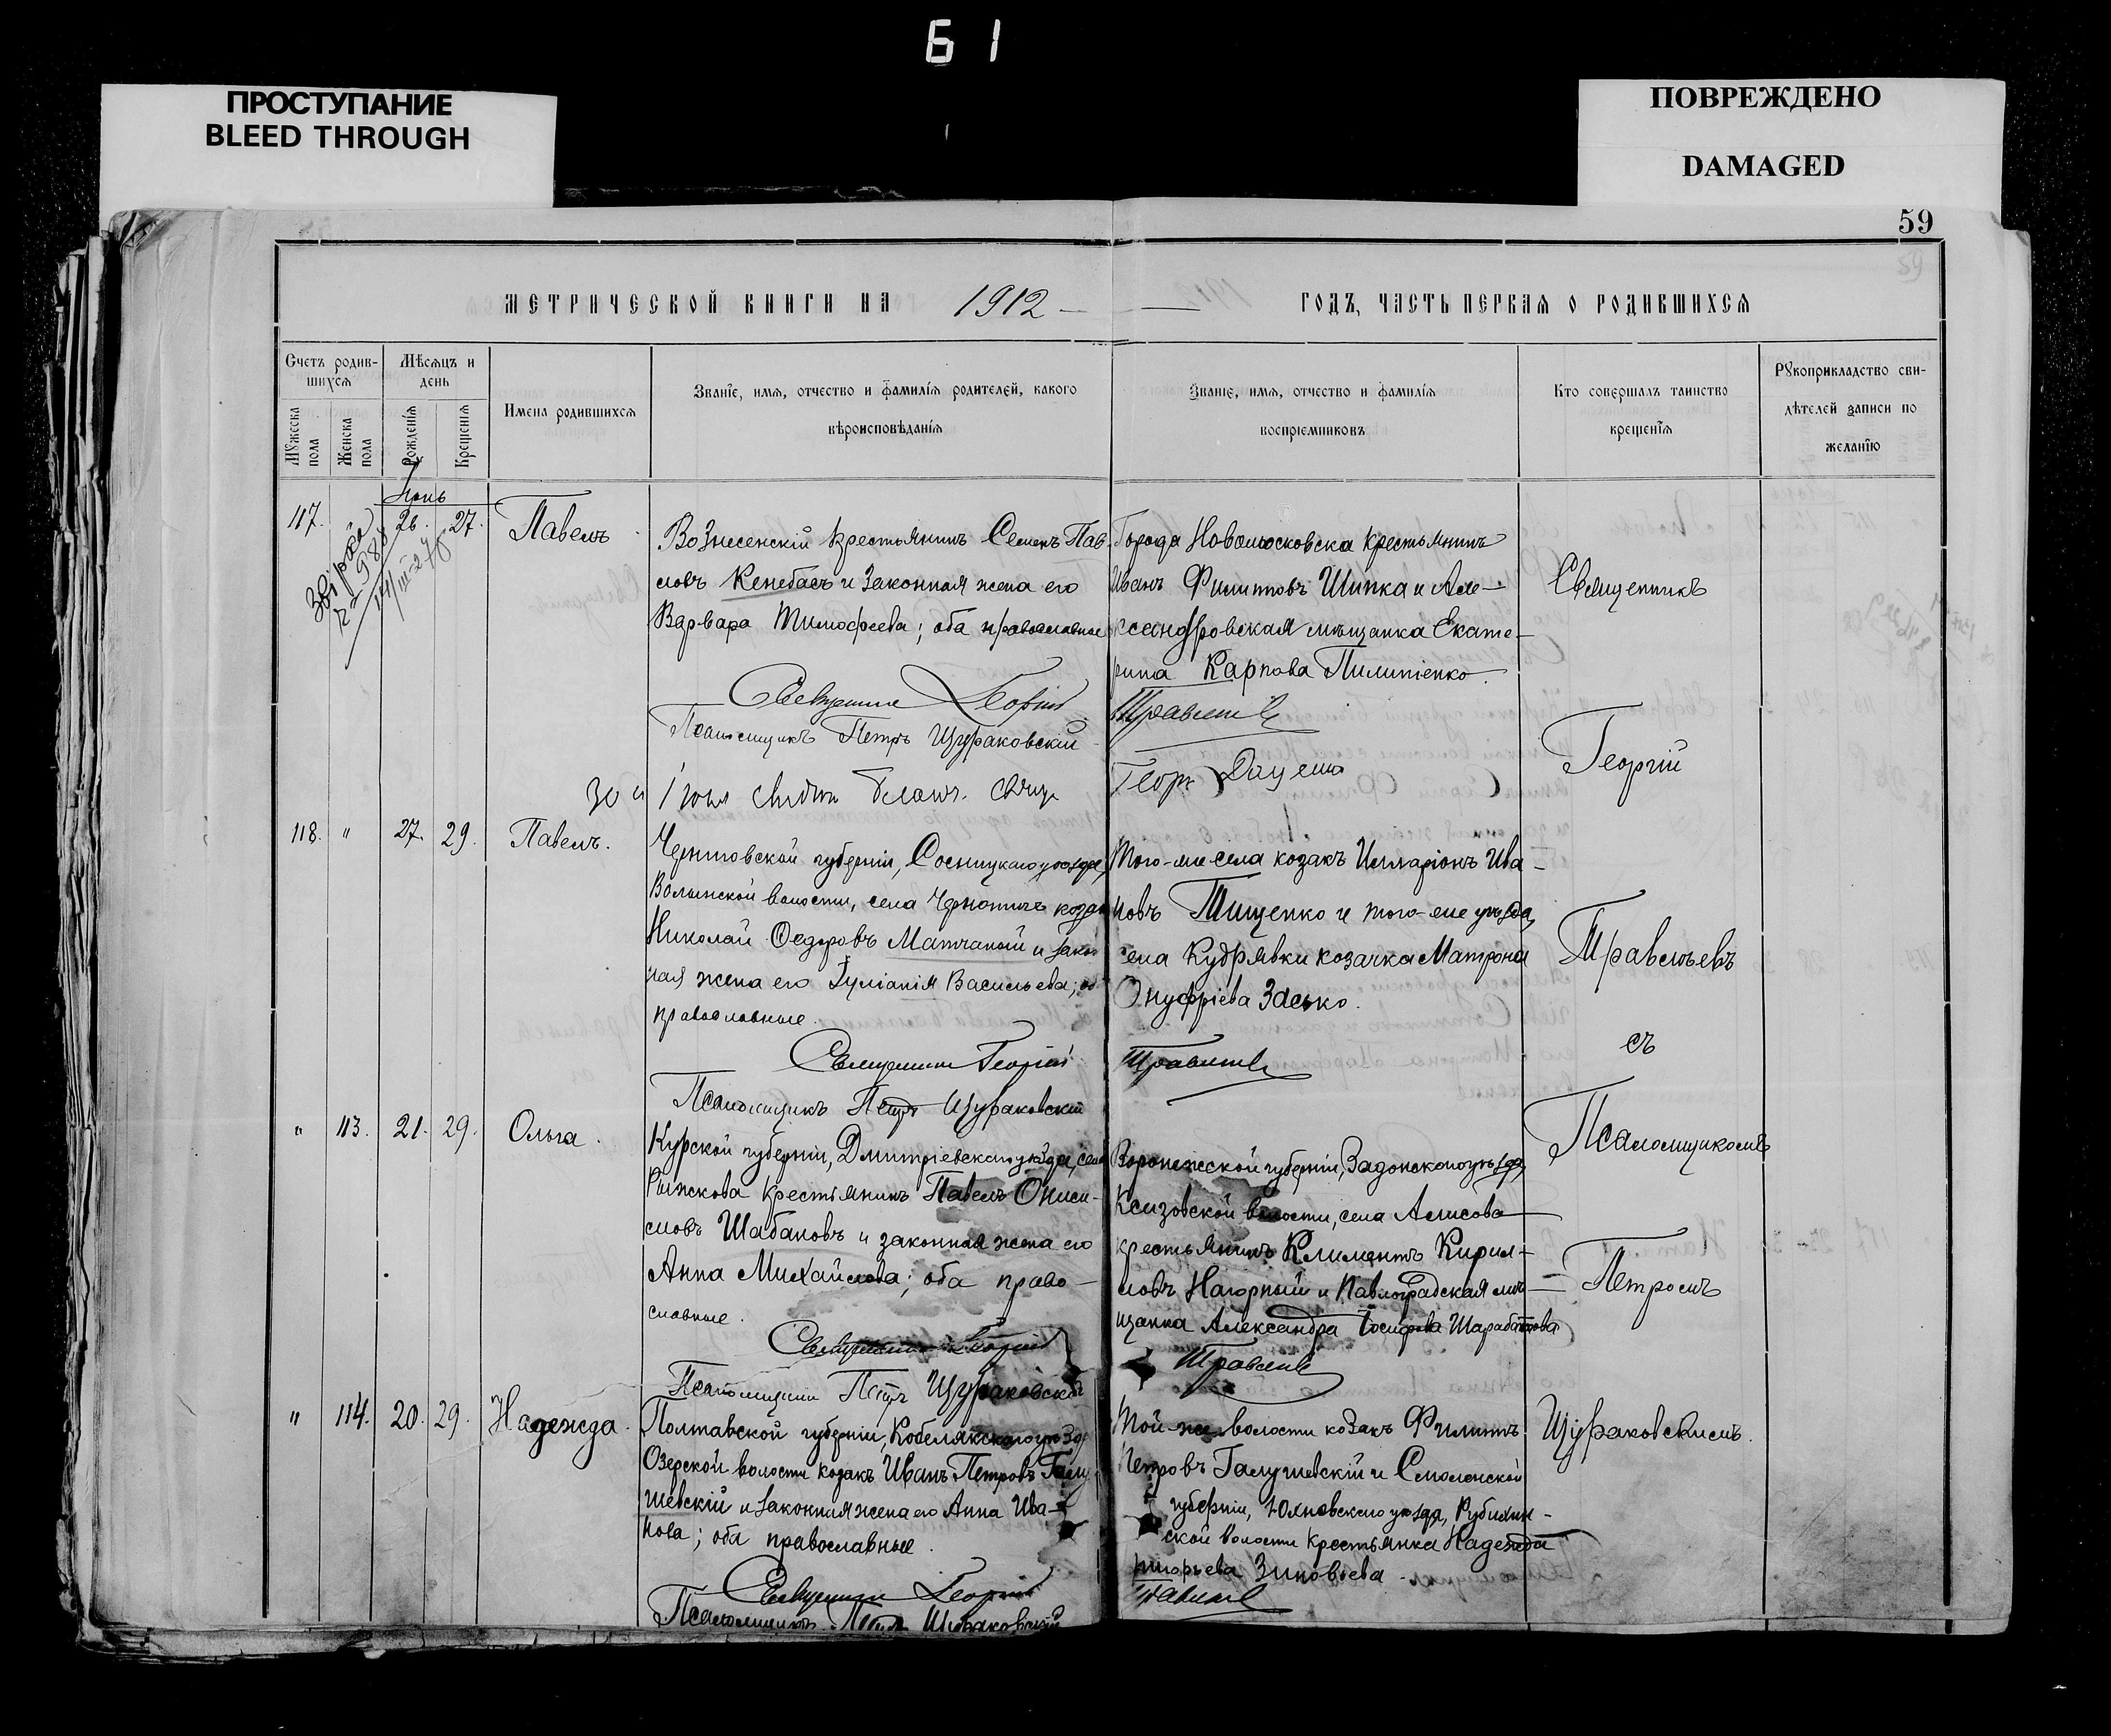 Б 1
ПРОСТУПАНИЕ
BLEED THROUGH
ПОВРЕЖДЕНО
DAMAGED
59
МЕТРИЧЕСКОЙ КНИГИ НА 1912 ГОДЪ, ЧАСТЬ ПЕРВАЯ О РОДИВШИХСЯ
Счетъ родив-
шихся
Мѣсяцъ и
день
Мужеска
пола
Женска
пола
Рожденія
Крещенія
Имена родившихся
Званіе, имя, отчество и фамилія родителей, какого
вѣроисповѣданія
Званіе, имя, отчество и фамилія
воспріемниковъ
Кто совершалъ таинство
крещенія
Рукоприкладство сви-
дѣтелей записи по
желанію
117. 26. 27. Павелъ
Вознесенскій крестьянинъ Семенъ Пав-
ловъ Кенебасъ и законная жена его
Варвара Тимофеева; оба православные
Священникъ Георгій
Псаломщикъ Петръ Щураковскій
Города Новомосковска крестьянинъ
Иванъ Филипповъ Шипка и Але-
ксандровская мѣщанка Екате-
рина Карпова Пилипенко.
118. " 27. 29. Павелъ.
Черниговской губерніи, Сосницкаго уѣзда,
Волынской волости, села козакъ
Николай Федоровъ и закон
ная жена его Іуліанія Васильева;
православные.
Священникъ Георгій
Псаломщикъ Петръ Щураковскій
Того-же села козакъ Илларіонъ Ива-
новъ Тищенко и того-же уѣзда,
села Кудрявки козачка Матрона
Онуфріева Засько.
" 113. 21. 29. Ольга.
Курской губерніи, Дмитріевскаго уѣзда, села
Рыжкова крестьянинъ Павелъ Ониси-
мовъ Шабановъ и законная жена его
Анна Михайлова; оба право-
славные.
Священникъ Георгій
Псаломщикъ Петръ Щураковскій
Воронежской губерніи, Задонскаго уѣзда,
Ксизовской волости, села
крестьянинъ Климентъ Кирил-
ловъ Нагорный и Павлоградская мѣ-
щанка Александра Іосифова
" 114. 20. 29. Надежда.
Полтавской губерніи, Кобелякскаго уѣзда
Озерской волости козакъ Иванъ Петровъ Галу-
шевскій и законная жена его Анна Ива-
нова; оба православные.
Священникъ Георгій
Псаломщикъ Петръ Щураковскій
Той-же волости козакъ Филиппъ
Петровъ Галушевскій и Смоленской
губерніи, Юхновскаго уѣзда,
ской волости крестьянка Надежда
Зиновьева.
Священникъ
Георгій
Травлѣевъ
съ
Псаломщикомъ
Петромъ
Щураковскимъ.